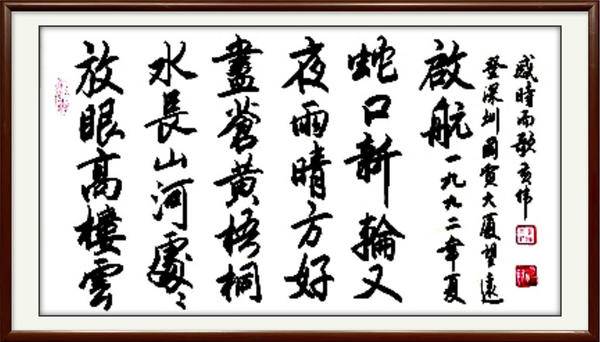 放眼高樓雲
水長山河處〻
盡蒼黃梧桐
夜雨晴方好
蛇口新輪又
啟航一九九二年夏
登深圳國貿大廈望遠
感時而歌